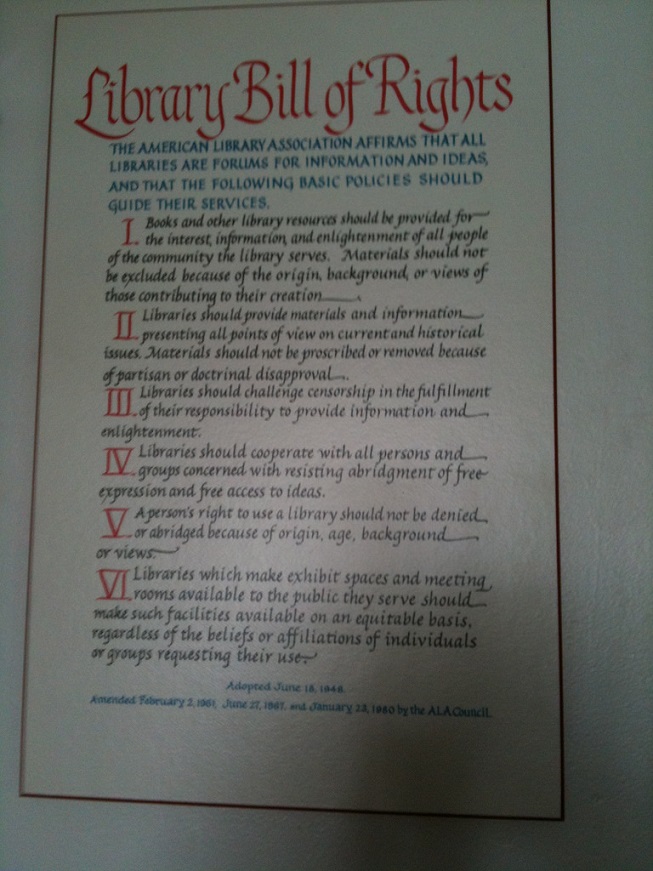 Library Bill of Rights
THE AMERICAN LIBRARY ASSOCIATION AFFIRMS THAT ALL
LIBRARIES ARE FORUMS FOR INFORMATION AND IDEAS,
AND THAT THE FOLLOWING BASIC POLICIES SHOULD
GUIDE THEIR SERVICES.
I. Books and other library resources should be provided for
the interest, information, and enlightenment of all people
of the community the library serves. Materials should not
be excluded because of the origin, background, or views of
those contributing to their creation.
II. Libraries should provide materials and information
presenting all points of view on current and historical
issues. Materials should not be proscribed or removed because
of partisan or doctrinal disapproval.
III. Libraries should challenge censorship in the fulfillment
of their responsibility to provide information and
enlightenment.
IV. Libraries should cooperate with all persons and
groups concerned with resisting abridgment of free
expression and free access to ideas.
V. A person's right to use a library should not be denied
or abridged because of origin, age, background
or views.
VI. Libraries which make exhibit spaces and meeting
rooms available to the public they serve should
make such facilities available on an equitable basis,
regardless of the beliefs or affiliations of individuals
or groups requesting their use.
Adopted June 18, 1948.
Amended February 2, 1961, June 27, 1967, and January 23, 1980 by the ALA Council.